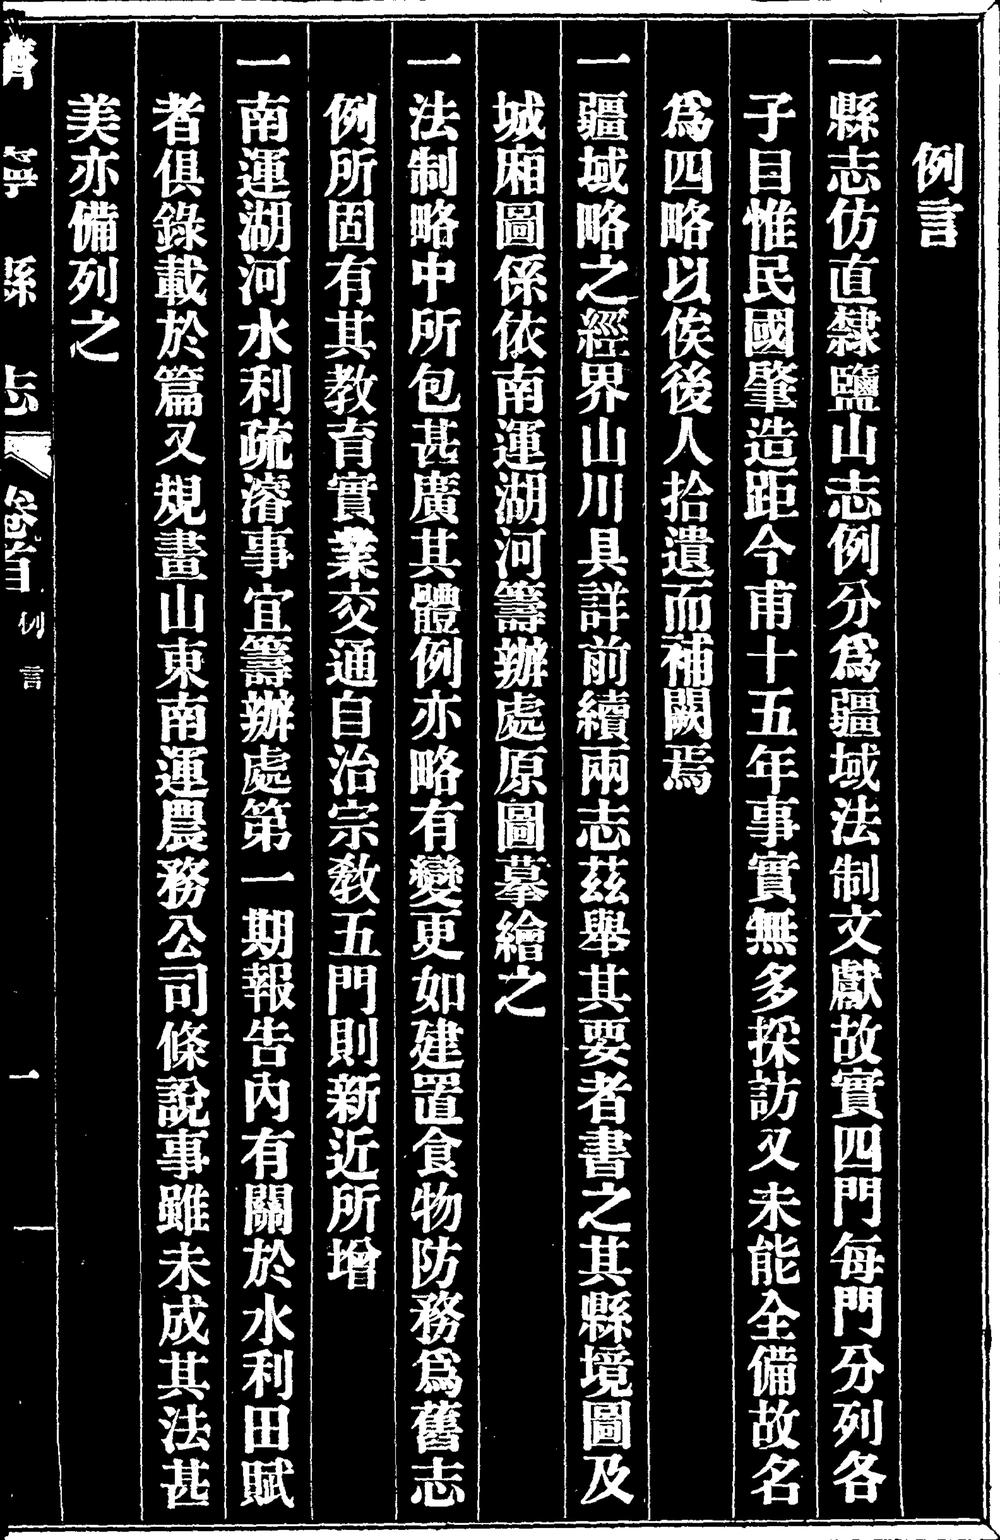 例言
一縣志仿直隸鹽山志例分爲疆域法制文獻故實四門每門分列各
子目惟民國肇造距今甫十五年事實無多採訪又未能全備故名
爲四略以俟後人拾遺而補闕焉
一疆域略之經界山川具詳前續兩志茲舉其要者書之其縣境圖及
城廂圖係依南運湖河籌辦處原圖摹繪之
一法制略中所包甚廣其體例亦略有變更如建置食物防務爲舊志
例所固有其教育實業交通自治宗教五門則新近所增
一南運湖河水利疏濬事宜籌辦處第一期報告內有關於水利田賦
者俱錄載於篇又規畫山東南運農務公司條說事雖未成其法甚
美亦備列之
濟寧縣志 卷首 例言 一